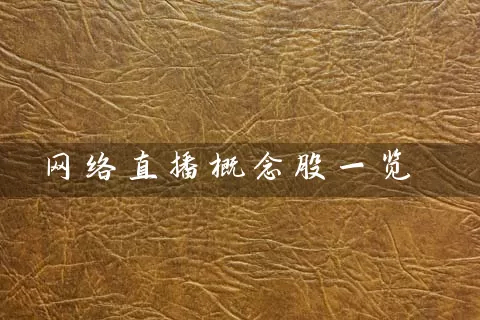 网络直播概念股一览